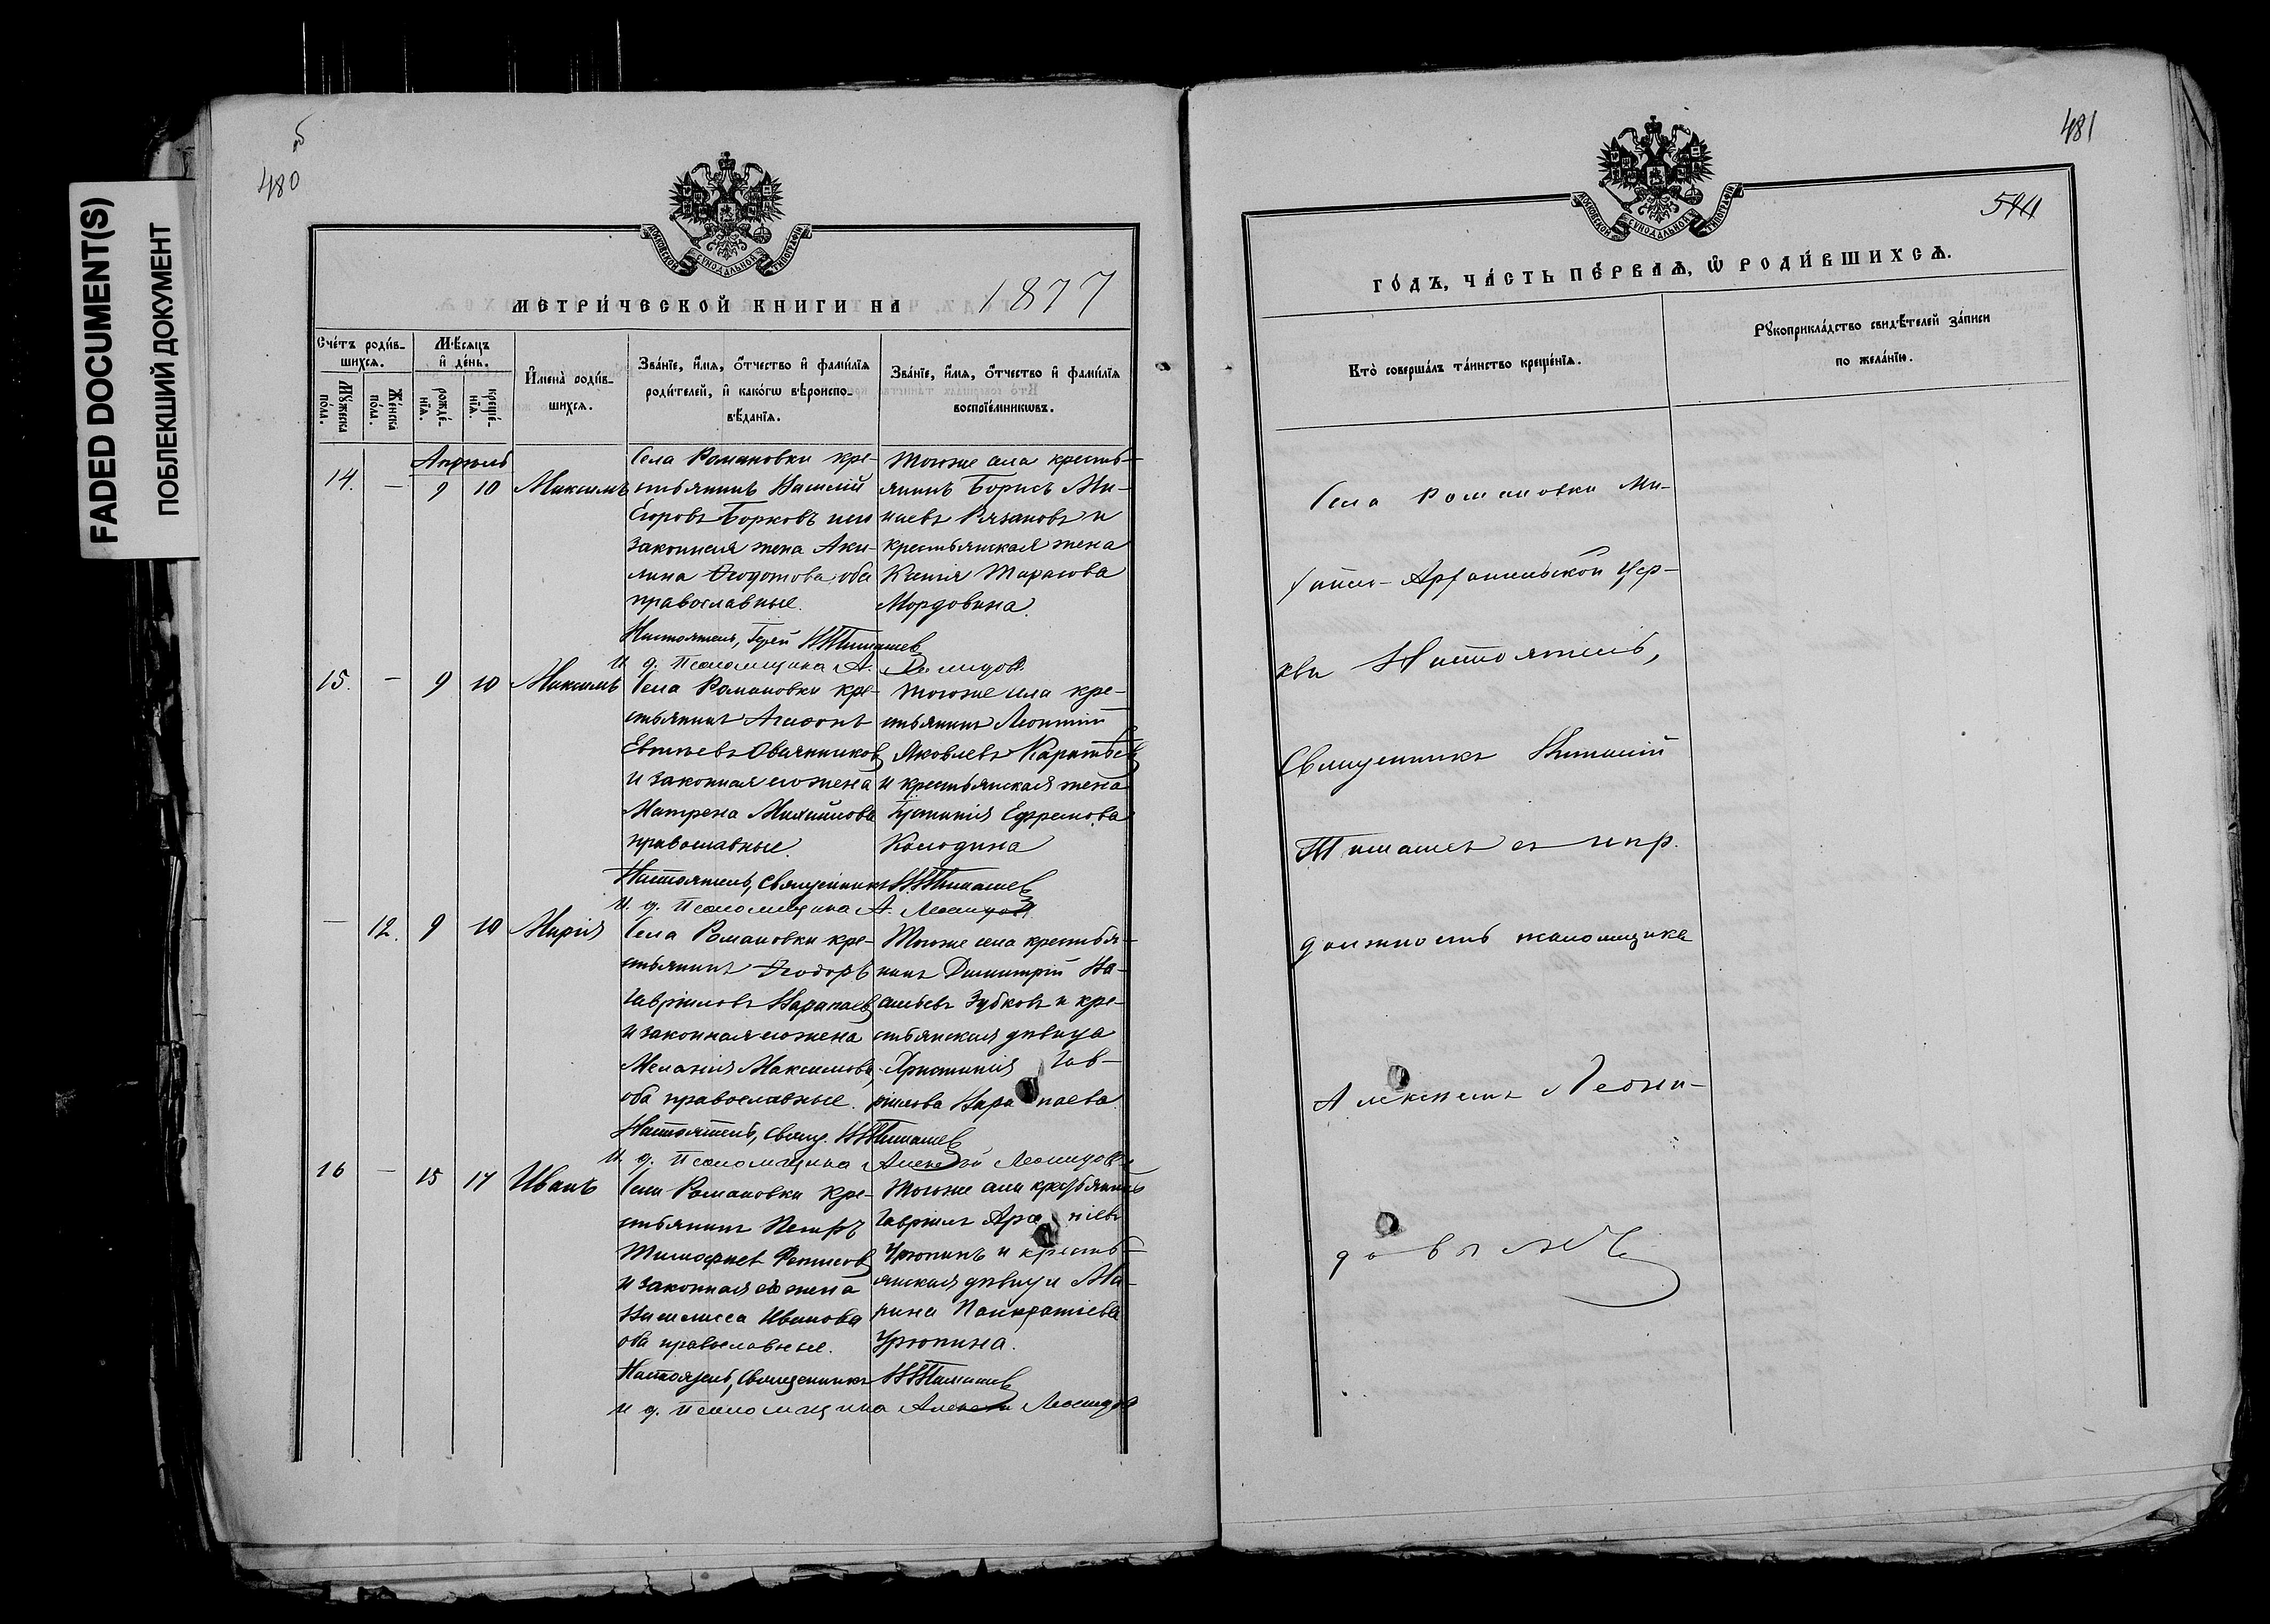 FADED DOCUMENT(S)
ПОБЛЕКШИЙ ДОКУМЕНТ
480
об
МОСКОВСКОЙ СѴНОДАЛЬНОЙ ТИПОГРАФІИ
МЕТРИ́ЧЕСКОЙ КНИГИ НА 1877
Сче́тъ роди́в-
шихсѧ.
Мꙋ́жеска
по́ла.
Же́нска
по́ла.
Мѣ́сѧцъ
и҆ де́нь.
рожде́-
нїѧ.
креще́-
нїѧ.
И҆мена̀ роди́в-
шихсѧ.
Зва́нїе, и҆́мѧ, ѻ҆́тчество и҆ фами́лїѧ
роди́телей, и҆ како́гѡ вѣроиспо-
вѣ́данїѧ.
Зва́нїе, и҆́мѧ, ѻ҆́тчество и҆ фами́лїѧ
воспрїе́мникѡвъ.
Апрѣль
14. — 9 10 Максимъ
Села Романовки кре-
стьянинъ Василій
Егоровъ Борковъ и его
законная жена Аки-
лина Ѳеодотова, оба
православные.
Тогоже села кресть-
янинъ Борисъ Ми-
наевъ Рязановъ и
крестьянская жена
Ксенія Тарасова
Мордовина.
Настоятель, Іерей В. Тимашевъ
И. д. псаломщика А. Леонидовъ
15. — 9 10 Максимъ
Села Романовки кре-
стьянинъ Агаѳонъ
Евтиѣевъ Овчинниковъ
и законная его жена
Матрена Михайлова
православные.
Тогоже села кре-
стьянинъ Леонтій
Яковлевъ
и крестьянская жена
Іустинія Ефремова
Колодина
Настоятель, Священникъ В. Тимашевъ
И. д. псаломщика А. Леонидовъ
— 12. 9 10 Марія
Села Романовки кре-
стьянинъ Ѳеодоръ
Гавріиловъ Варапаевъ
и законная его жена
Меланія Максимова,
оба православные.
Тогоже села крестья-
нинъ Димитрій Ва-
сильевъ Зубковъ и кре-
стьянская дѣвица
Христинія Гав-
ріилова Варапаева
Настоятель, Свящ. В. Тимашевъ
И. д. псаломщика Алексѣй Леонидовъ
16 — 15 17 Иванъ
Села Романовки кре-
стьянинъ Петръ
Тимофѣевъ Денисовъ
и законная его жена
Василисса Иванова
оба православные.
Тогоже села крестьянинъ
Гавріилъ
Урюпинъ и кресть-
янская дѣвица Ма-
рина Панкратіева
Урюпина.
Настоятель, Священникъ В. Тимашевъ
И. д. псаломщика Алексѣй Леонидовъ
481
514
МОСКОВСКОЙ СѴНОДАЛЬНОЙ ТИПОГРАФІИ
ГО́ДЪ, ЧА́СТЬ ПЕ́РВАѦ, Ѡ҆ РОДИ́ВШИХСѦ.
Кто̀ соверша́лъ та́инство креще́нїѧ.
Рꙋкоприкла́дство свидѣ́телей за́писи
по жела́нїю.
Села Романовки Ми-
хаило-Архангельской Цер-
кви Настоятель,
Священникъ Василій
Тимашевъ съ испр.
должность псаломщика
Алексѣемъ Леони-
довымъ